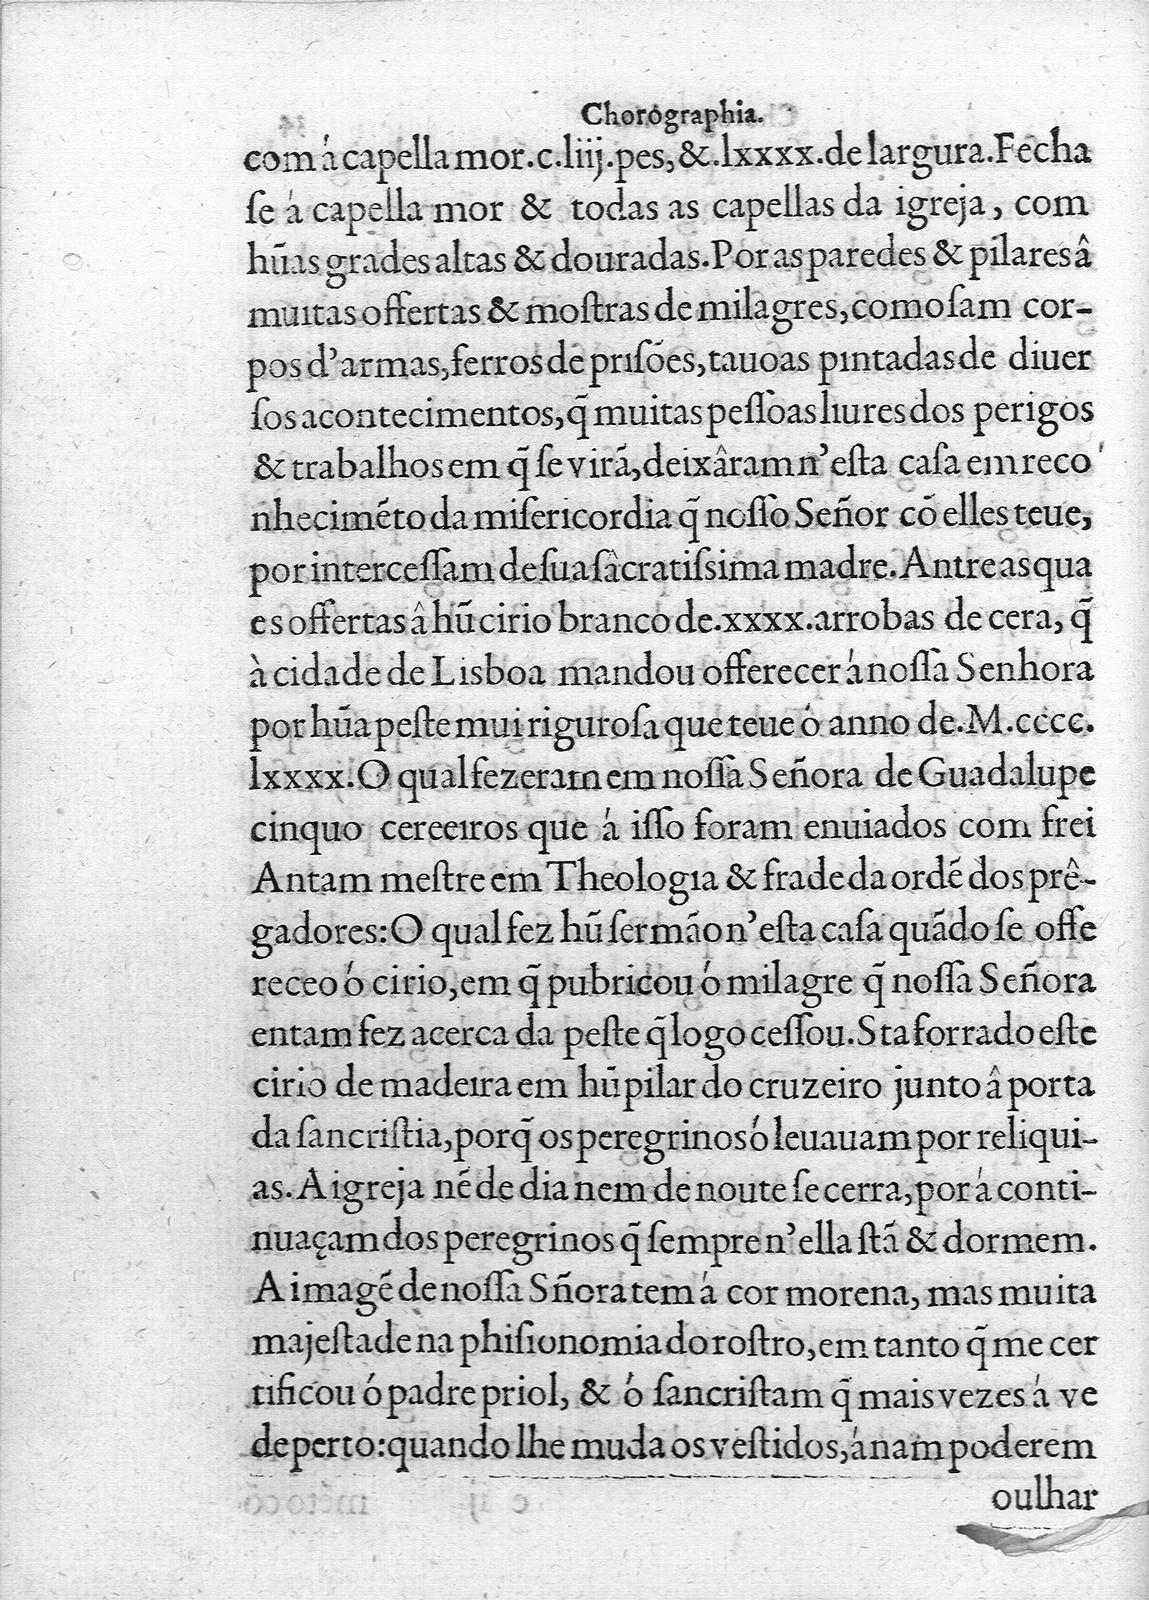 Chorographia.
com á capella mor.c.liij.pes,&.lxxxx.de largura.Fecha
ſe á capella mor & todas as capellas da igreja, com
hũas grades altas & douradas.Por as paredes & pilares â
muitas offertas & moſtras de milagres,como ſam cor-
pos d'armas,ferros de priſões,tauoas pintadas de diuer
ſos acontecimentos,q̃ muitas peſſoas liures dos perigos
& trabalhos em q̃ ſe virã,deixâram n'eſta caſa em reco
nhecimẽto da miſericordia q̃ noſſo Señor cõ elles teue,
por interceſſam de ſua ſâcratiſsima madre.Antre as qua
es offertas â hũ cirio branco de.xxxx.arrobas de cera, q̃
à cidade de Lisboa mandou offerecer á noſſa Senhora
por hũa peſte mui riguroſa que teue ó anno de.M.cccc.
lxxxx.O qual fezeram em noſſa Señora de Guadalupe
cinquo cereeiros que á iſſo foram enuiados com frei
Antam meſtre em Theologia & frade da ordẽ dos prê-
gadores:O qual fez hũ ſermão n'eſta caſa quãdo ſe offe
receo ó cirio,em q̃ pubricou ó milagre q̃ noſſa Señora
entam fez acerca da peſte q̃ logo ceſſou.Sta forrado eſte
cirio de madeira em hũ pilar do cruzeiro junto â porta
da ſancriſtia,porq̃ os peregrinos ó leuauam por reliqui-
as.A igreja nẽ de dia nem de noute ſe cerra,por á conti-
nuaçam dos peregrinos q̃ ſempre n'ella ſtã & dormem.
A imagẽ de noſſa Sñora tem á cor morena, mas muita
majeſtade na phiſionomia do roſtro,em tanto q̃ me cer
tificou ó padre priol, & ó ſancriſtam q̃ mais vezes á ve
de perto:quando lhe muda os veſtidos,á nam poderem
oulhar